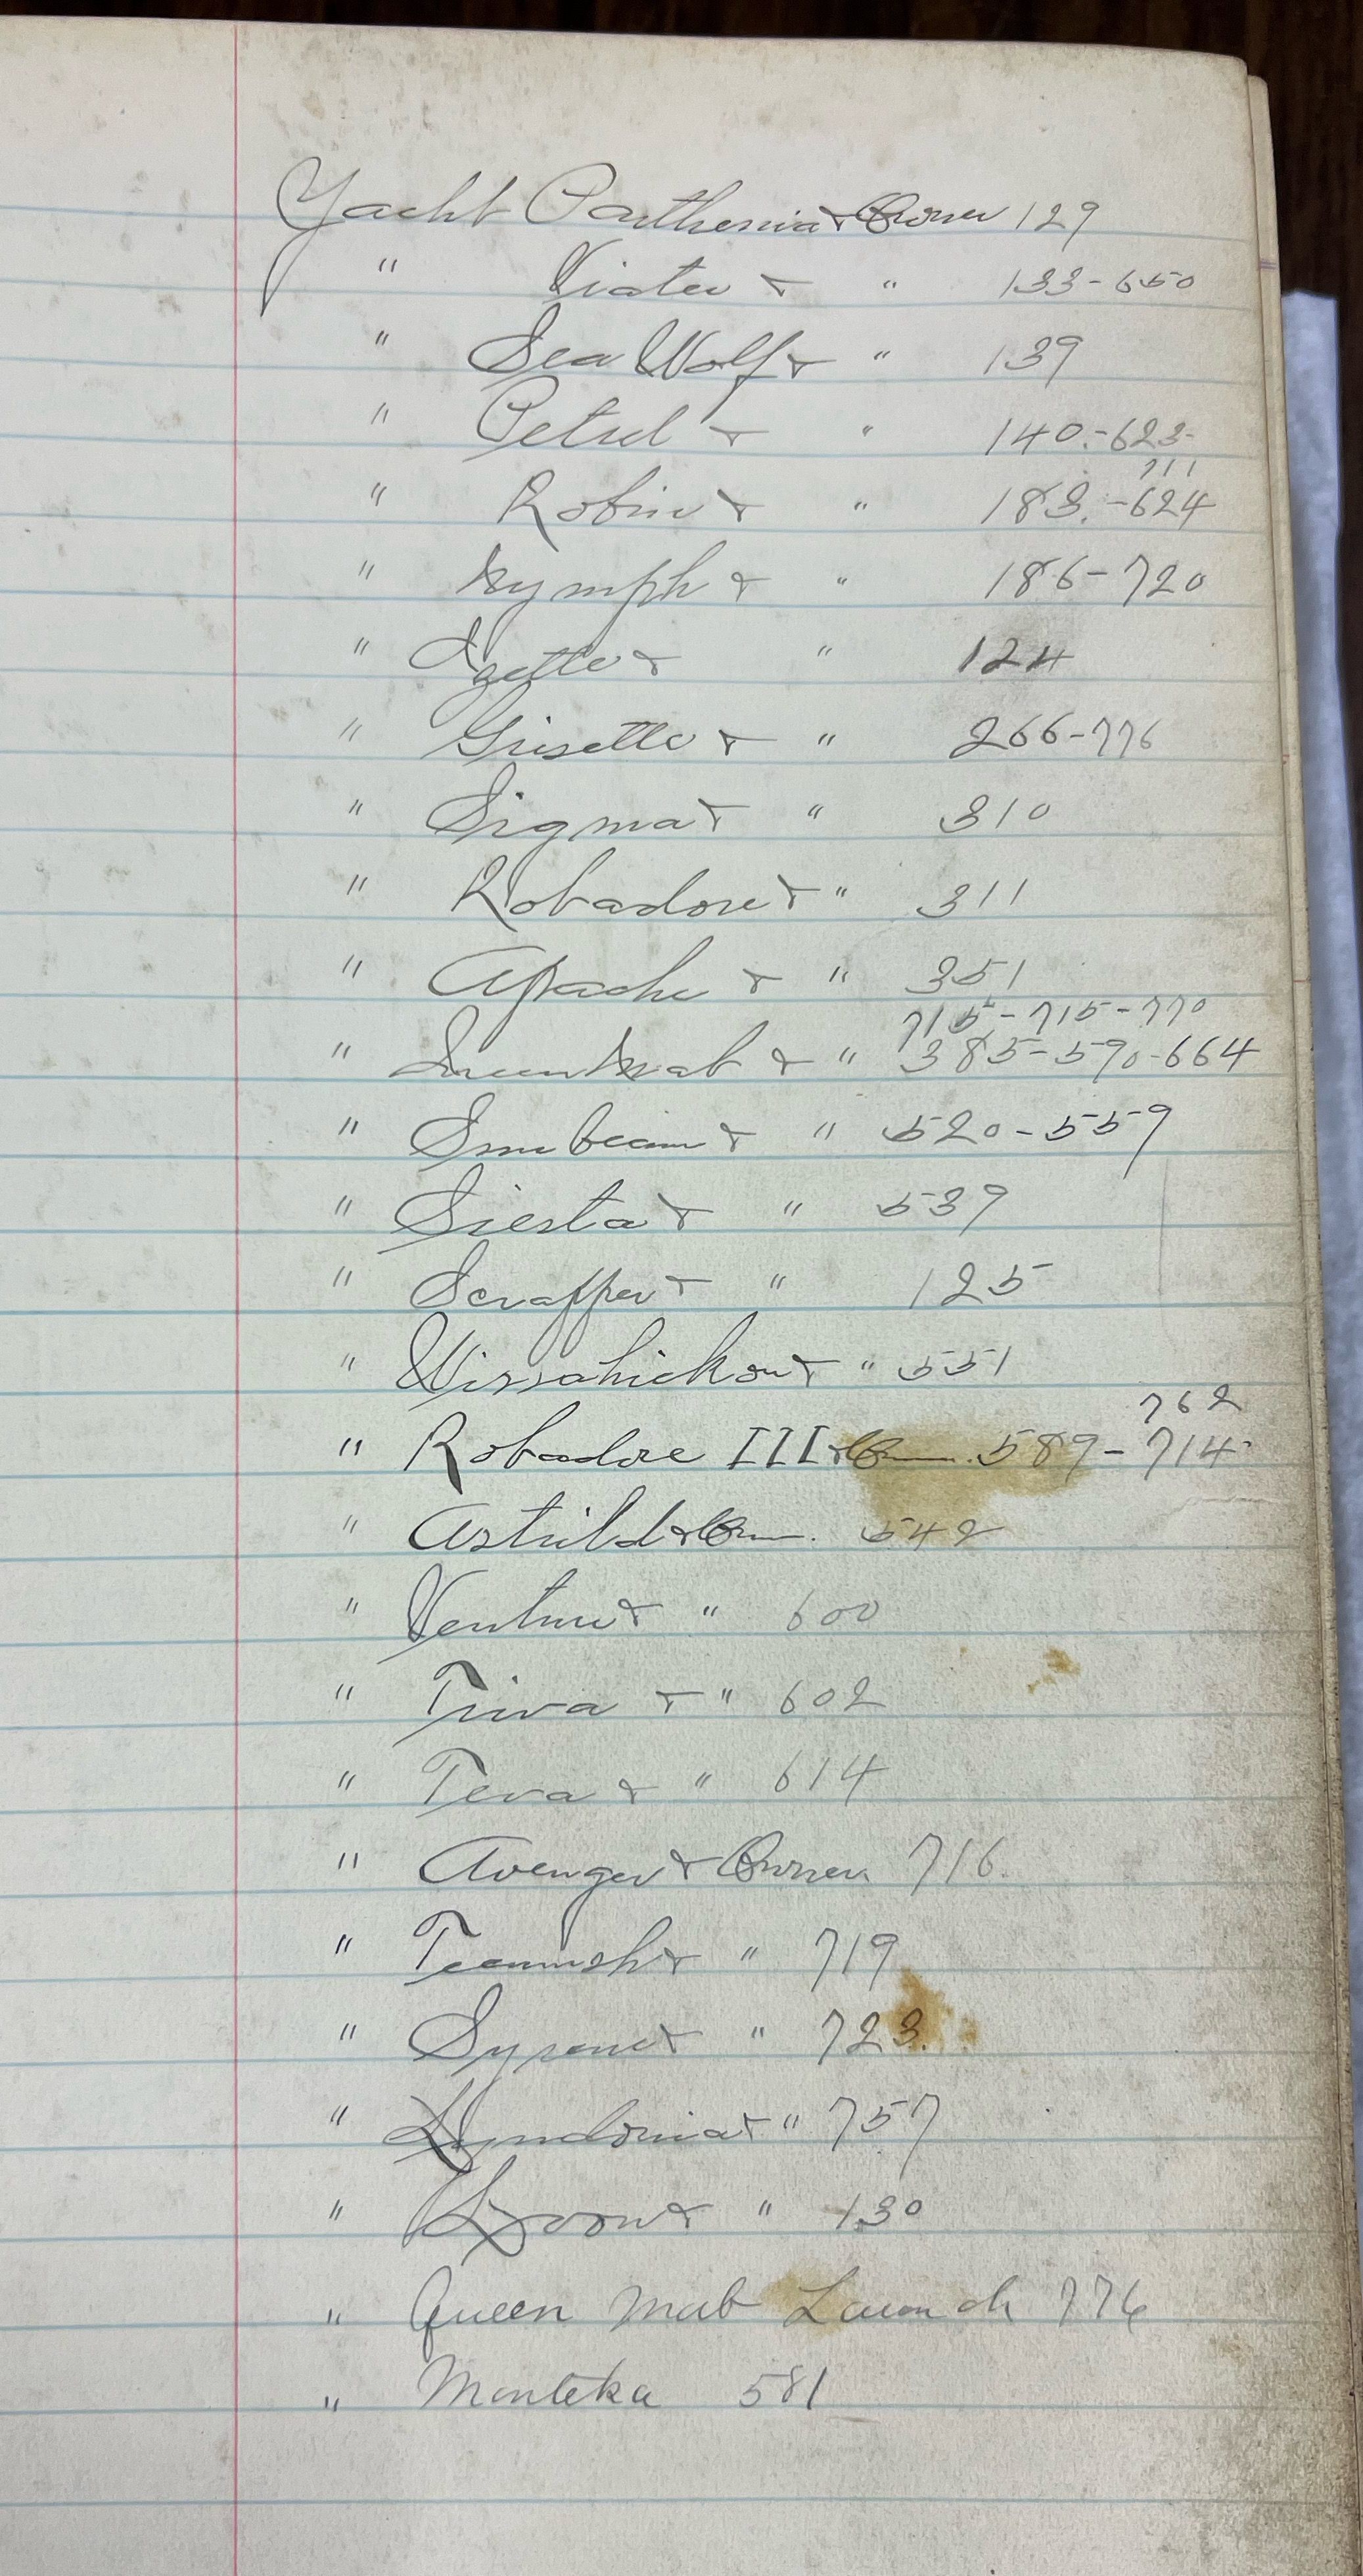 Yacht Parthenia & Owner 129
" Viator & " 133-650
" Sea Wolf & " 139
" Petrel & " 140.-623-
711
" Robin & " 183.-624
" Nymph & " 186-720
" & " 124
" Grisette & " 266-776
" Sigma & " 310
" Robadore & " 311
" Apache & " 351
715-715-770
" Queen Mab & " 385-590-664
" Sunbeam & " 520-559
" Siesta & " 539
" Scrapper & " 125
" Wissahickon & " 551
762
" Robadore III & Own. 589-714
" Astrild & Own. 542
" Venture & " 600
" Triva & " 602
" Teva & " 614
" Avenger & Owner. 716.
" Tecumseh & " 719
" Syrene & " 723.
" Lyndonia & " 757
" Loon & " 130
" Queen Mab Launch 776
" Manteka 581